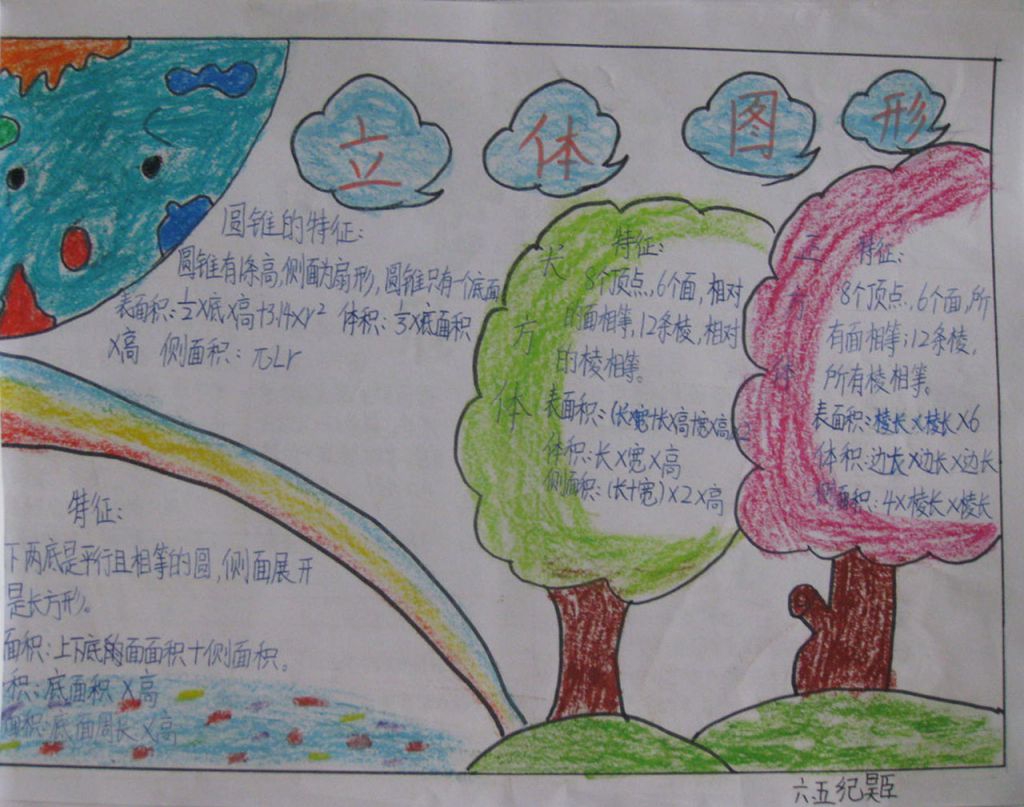 立体图形
圆锥的特征:
圆锥有1条高,侧面为扇形,圆锥只有一个底面
表面积:½×底×高+3.14×r² 体积:⅓×底面积
×高 侧面积:πLr
长方体
特征:
8个顶点,6个面,相对
的面相等,12条棱,相对
的棱相等。
表面积:(长×宽+长×高+宽×高)×2
体积:长×宽×高
侧面积:(长+宽)×2×高
正方体
特征:
8个顶点,6个面,所
有面相等;12条棱,
所有棱相等。
表面积:棱长×棱长×6
体积:边长×边长×边长
侧面积:4×棱长×棱长
特征:
下两底是平行且相等的圆,侧面展开
是长方形。
面积:上下底的面面积+侧面积。
积:底面积×高
面积:底面周长×高
六.五纪昊臣